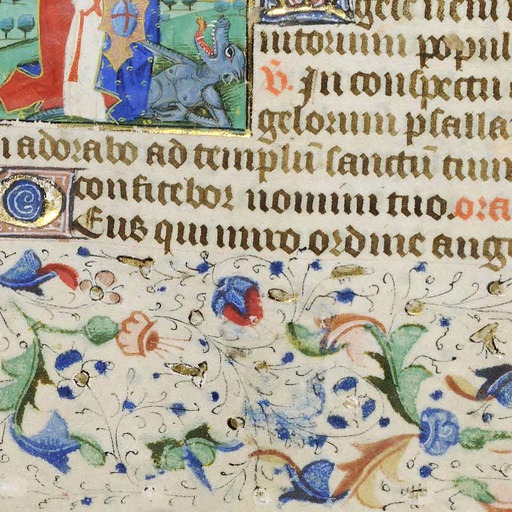 gele
iutorium popul
V. In conspectu
gelorum psalla
adorabo ad templū sanctū tuum
confitebor nomini tuo. ora
Eus qui miro ordine ange